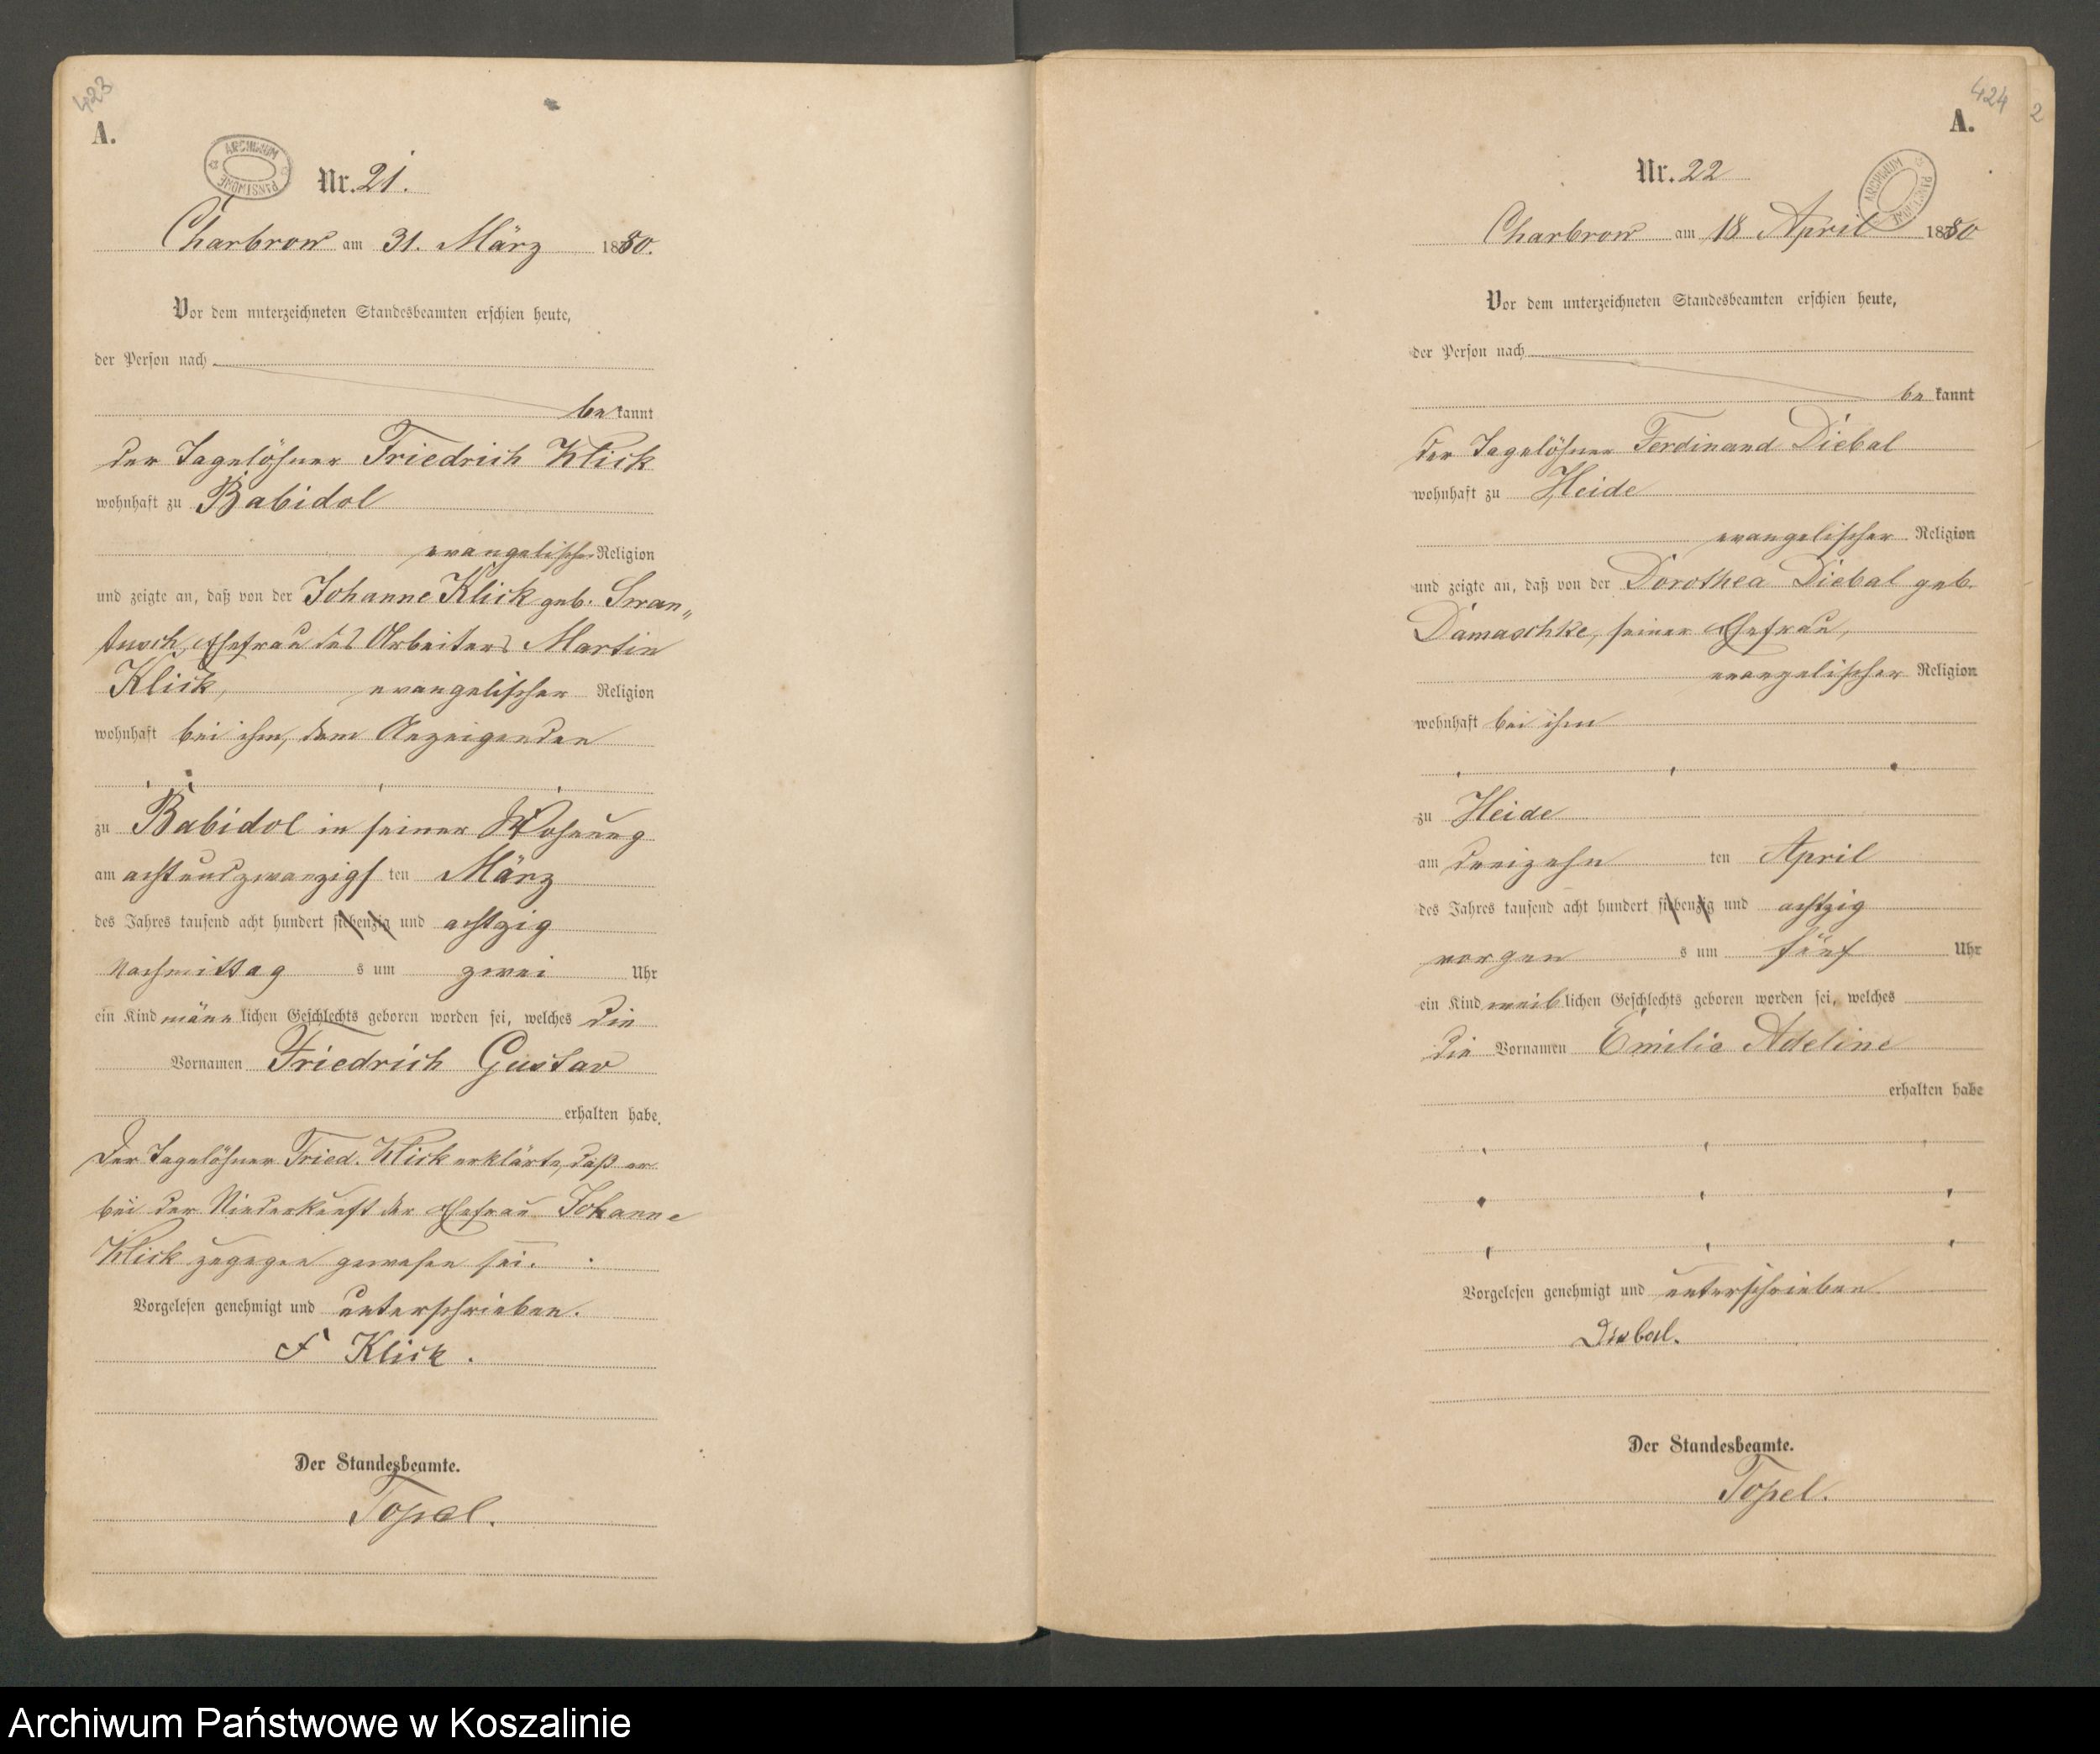 423
A.
ARCHIWUM PAŃSTWOWE
Nr. 21.
Charbrow am 31. März 1880.
Vor dem unterzeichneten Standesbeamten erschien heute,
der Person nach
bekannt
der Tagelöhner Friedrich Klick
wohnhaft zu Babidol
evangelischer Religion
und zeigte an, daß von der Johanne Klick geb. Swan„
tusch, Ehefrau des Arbeiters Martin
Klick, evangelischer Religion
wohnhaft bei ihm, dem Anzeigenden
zu Babidol in seiner Wohnung
am achtundzwanzigs ten März
des Jahres tausend acht hundert siebenzig und achtzig
Nachmittag s um zwei Uhr
ein Kind männlichen Geschlechts geboren worden sei, welches die
Vornamen Friedrich Gustav
erhalten habe.
Der Tagelöhner Fried. Klick erklärte, daß er
bei der Niederkunft der Ehefrau Johanne
Klick zugegen gewesen sei.
Vorgelesen genehmigt und unterschrieben.
F Klick.
Der Standesbeamte.
Topel.
424
2
A.
ARCHIWUM PAŃSTWOWE
Nr. 22
Charbrow am 18 April 1880
Vor dem unterzeichneten Standesbeamten erschien heute,
der Person nach
bekannt
der Tagelöhner Ferdinand Diebal
wohnhaft zu Heide
evangelischer Religion
und zeigte an, daß von der Dorothea Diebal geb.
Damaschke, seiner Ehefrau,
evangelischer Religion
wohnhaft bei ihm
zu Heide
am dreizehn ten April
des Jahres tausend acht hundert siebenzig und achtzig
morgen s um fünf Uhr
ein Kind weiblichen Geschlechts geboren worden sei, welches
die Vornamen Emilie Adeline
erhalten habe
Vorgelesen genehmigt und unterschrieben
Diebal.
Der Standesbeamte.
Topel.
Archiwum Państwowe w Koszalinie